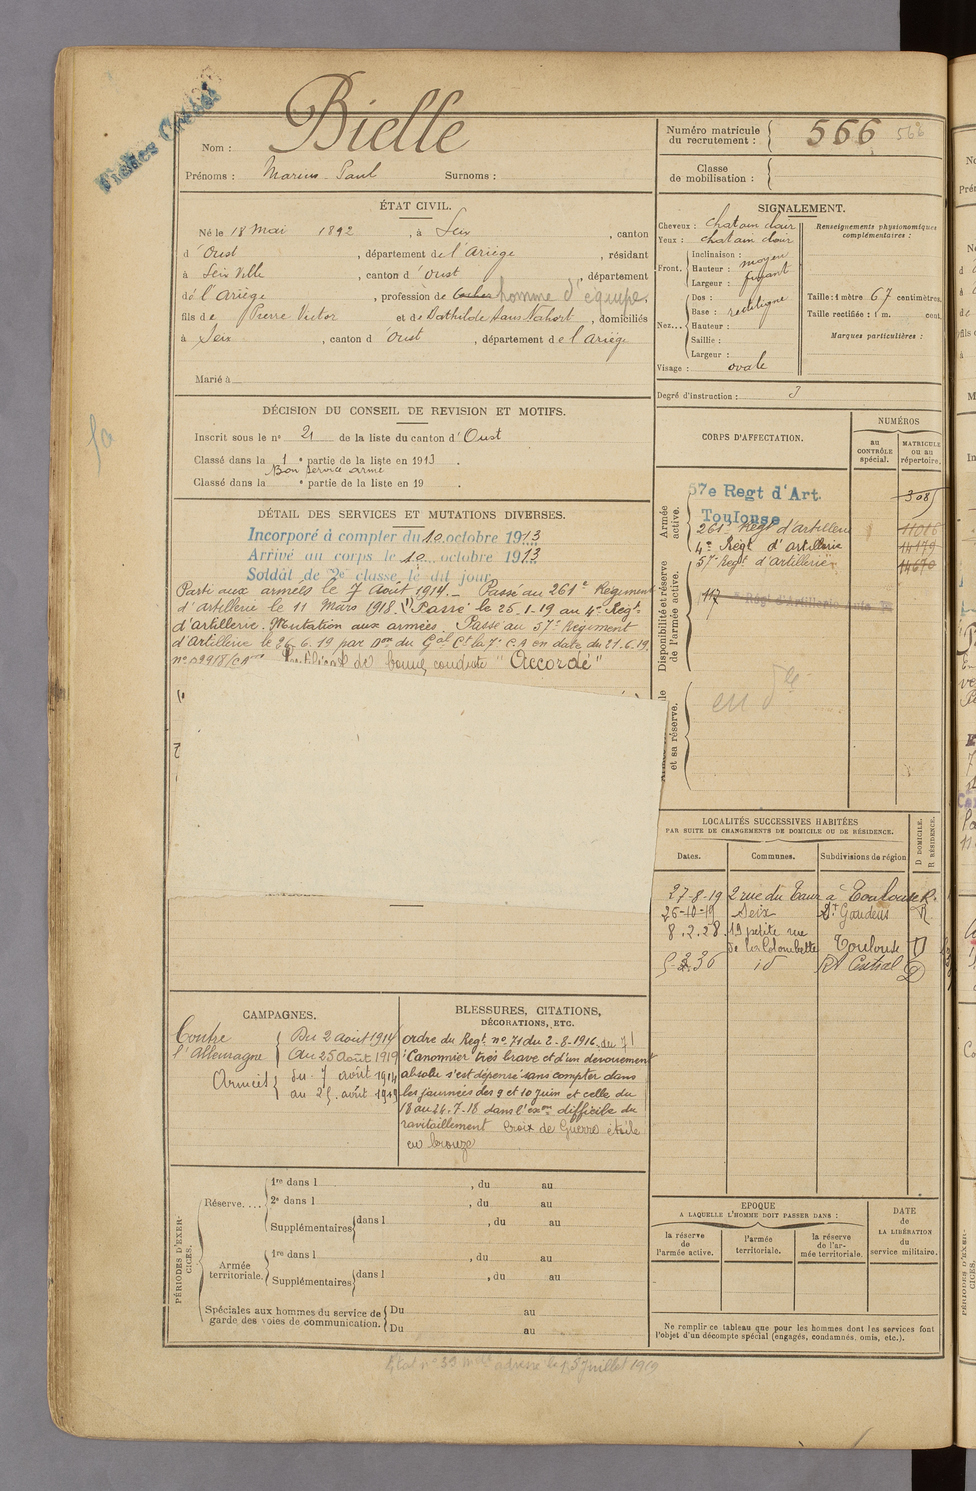 Nom : Bielle
Prénoms : Marius Paul Surnoms :
Numéro matricule du recrutement : 566 566
Classe de mobilisation :
ÉTAT CIVIL.
Né le 18 Mai 1892, à Seix, canton
d'Oust, département de l'Ariège, résidant
à Seix Ville, canton d'Oust, département
de l'Ariège, profession de homme d'équipe.
fils de Pierre Victor et de Mathilde, domiciliés
à Seix, canton d'Oust, département de l'Ariège
Marié à
SIGNALEMENT.
Cheveux : chatain clair
Yeux : chatain clair
Front. Inclinaison : moyen
Hauteur : fuyant
Largeur :
Nez... Dos : rectiligne
Base :
Hauteur :
Saillie :
Largeur :
Visage : ovale
Renseignements physionomiques complémentaires :
Taille : 1 mètre 67 centimètres.
Taille rectifiée : 1 m. cent.
Marques particulières :
Degré d'instruction : 3
DÉCISION DU CONSEIL DE REVISION ET MOTIFS.
Inscrit sous le n° 21 de la liste du canton d'Oust
Classé dans la 1e partie de la liste en 1913.
Bon Service armé
Classé dans la e partie de la liste en 19 .
DÉTAIL DES SERVICES ET MUTATIONS DIVERSES.
Incorporé à compter du 10 octobre 1913
Arrivé au corps le 10 octobre 1913
Soldat de 2e classe le dit jour
Parti aux armées le 7 Août 1914. Passé au 261e Régiment
d'artillerie le 11 Mars 1918. Passé le 25.1.19 au 4e Regt
d'artillerie. Mutation aux armées. Passé au 57e Régiment
d'artillerie le 26.6.19 par Don du Gal Ct la 7e C.A en date du 21.6.19
Certificat de bonne conduite "Accordé"
CORPS D'AFFECTATION.
NUMÉROS
au CONTRÔLE spécial.
MATRICULE ou au répertoire.
Armée active.
57e Regt d'Art.
Toulouse
261e Regt d'artillerie
4e Régt d'artillerie
57e Regt d'artillerie
Disponibilité et réserve de l'armée active.
117
et sa réserve.
LOCALITÉS SUCCESSIVES HABITÉES
PAR SUITE DE CHANGEMENTS DE DOMICILE OU DE RÉSIDENCE.
Dates. Communes. Subdivisions de région D DOMICILE. R RÉSIDENCE.
27-8-19 2 rue du Taur à Toulouse R.
26-10-19 Seix St Gaudens R
8.2.28 19 petite rue
de la Colombette Toulouse D
id Rt Central D
CAMPAGNES.
Contre l'Allemagne
Du 2 août 1914
au 25 Août 1919
Armées
du 7 août 1914
au 25 août 1919
BLESSURES, CITATIONS,
DÉCORATIONS, ETC.
ordre du Regt n° 71 du 2-8-1916
Canonnier très brave et d'un dévouement
absolu s'est dépensé sans compter dans
les journées des 9 et 10 juin et celle du
18 au 24-7-18 dans l'exon difficile du
ravitaillement Croix de Guerre étoile
en bronze
PÉRIODES D'EXERCICES.
Réserve.... 1re dans l , du au
2e dans l , du au
Supplémentaires dans l , du au
Armée territoriale. 1re dans l , du au
Supplémentaires dans l , du au
Spéciales aux hommes du service de garde des voies de communication. Du au
Du au
EPOQUE
A LAQUELLE L'HOMME DOIT PASSER DANS :
la réserve de l'armée active.
l'armée territoriale.
la réserve de l'armée territoriale.
DATE de LA LIBÉRATION du service militaire.
Ne remplir ce tableau que pour les hommes dont les services font
l'objet d'un décompte spécial (engagés, condamnés, omis, etc.).